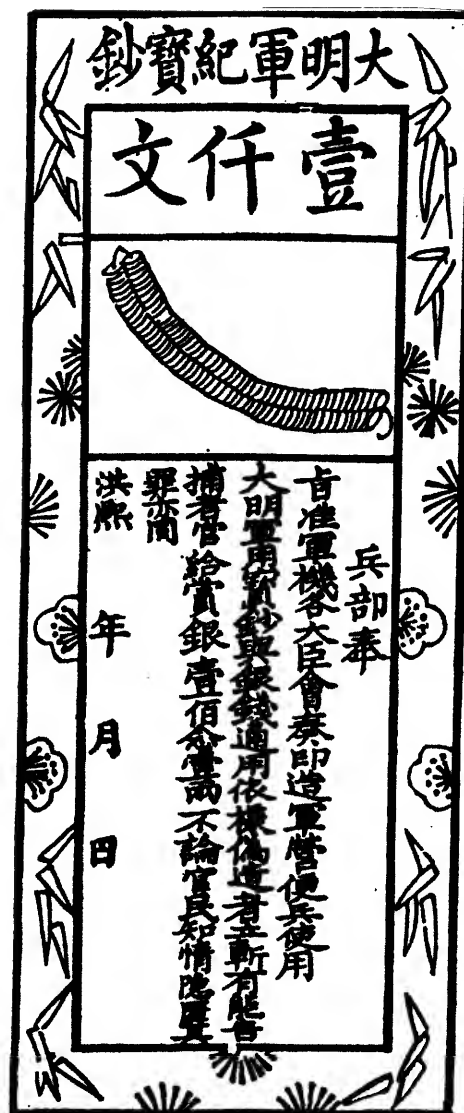 大明軍紀寶鈔
壹仟文
兵部奉
旨准軍機各大臣會奏印造軍營便兵使用
大明軍用寶鈔與銀錢通用依樣偽造者立斬有能告
捕者官給賞銀壹佰 不論官民知情隱匿其
罪亦同
洪熙 年 月 日